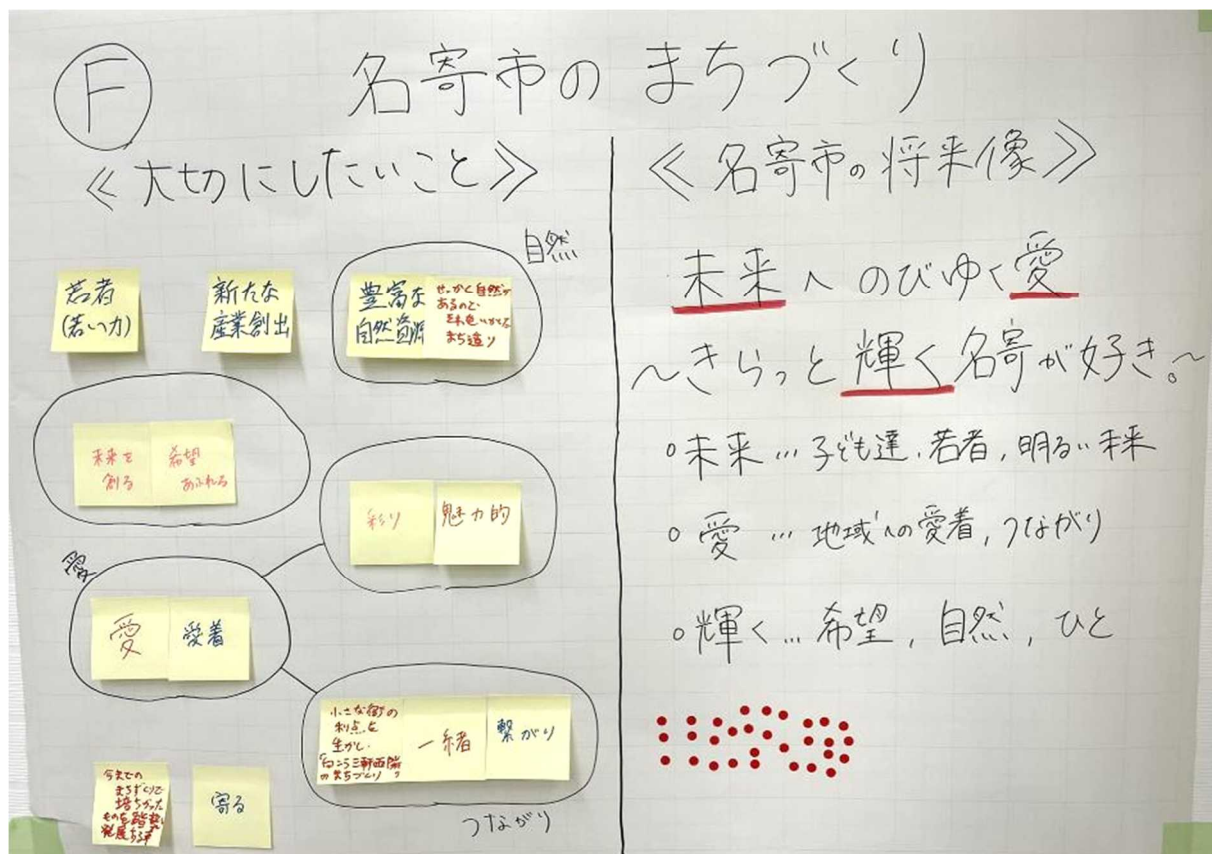 F
名寄市のまちづくり
≪大切にしたいこと≫
自然
若者
(若い力)
新たな
産業創出
豊富な
自然資源
せっかく自然が
あるので
それをいかした
まち造り
未来を
創る
希望
あふれる
彩り
魅力的
愛
愛
愛着
小さな街の
利点を
生かし
「向こう三軒両隣」
のまちづくり
一緒
繋がり
つながり
今までの
まちづくりで
培ちかった
ものを踏襲し
発展させる
寄る
≪名寄市の将来像≫
未来へのびゆく愛
～きらっと輝く名寄が好き。～
○未来…子ども達、若者、明るい未来
○愛…地域への愛着、つながり
○輝く…希望、自然、ひと